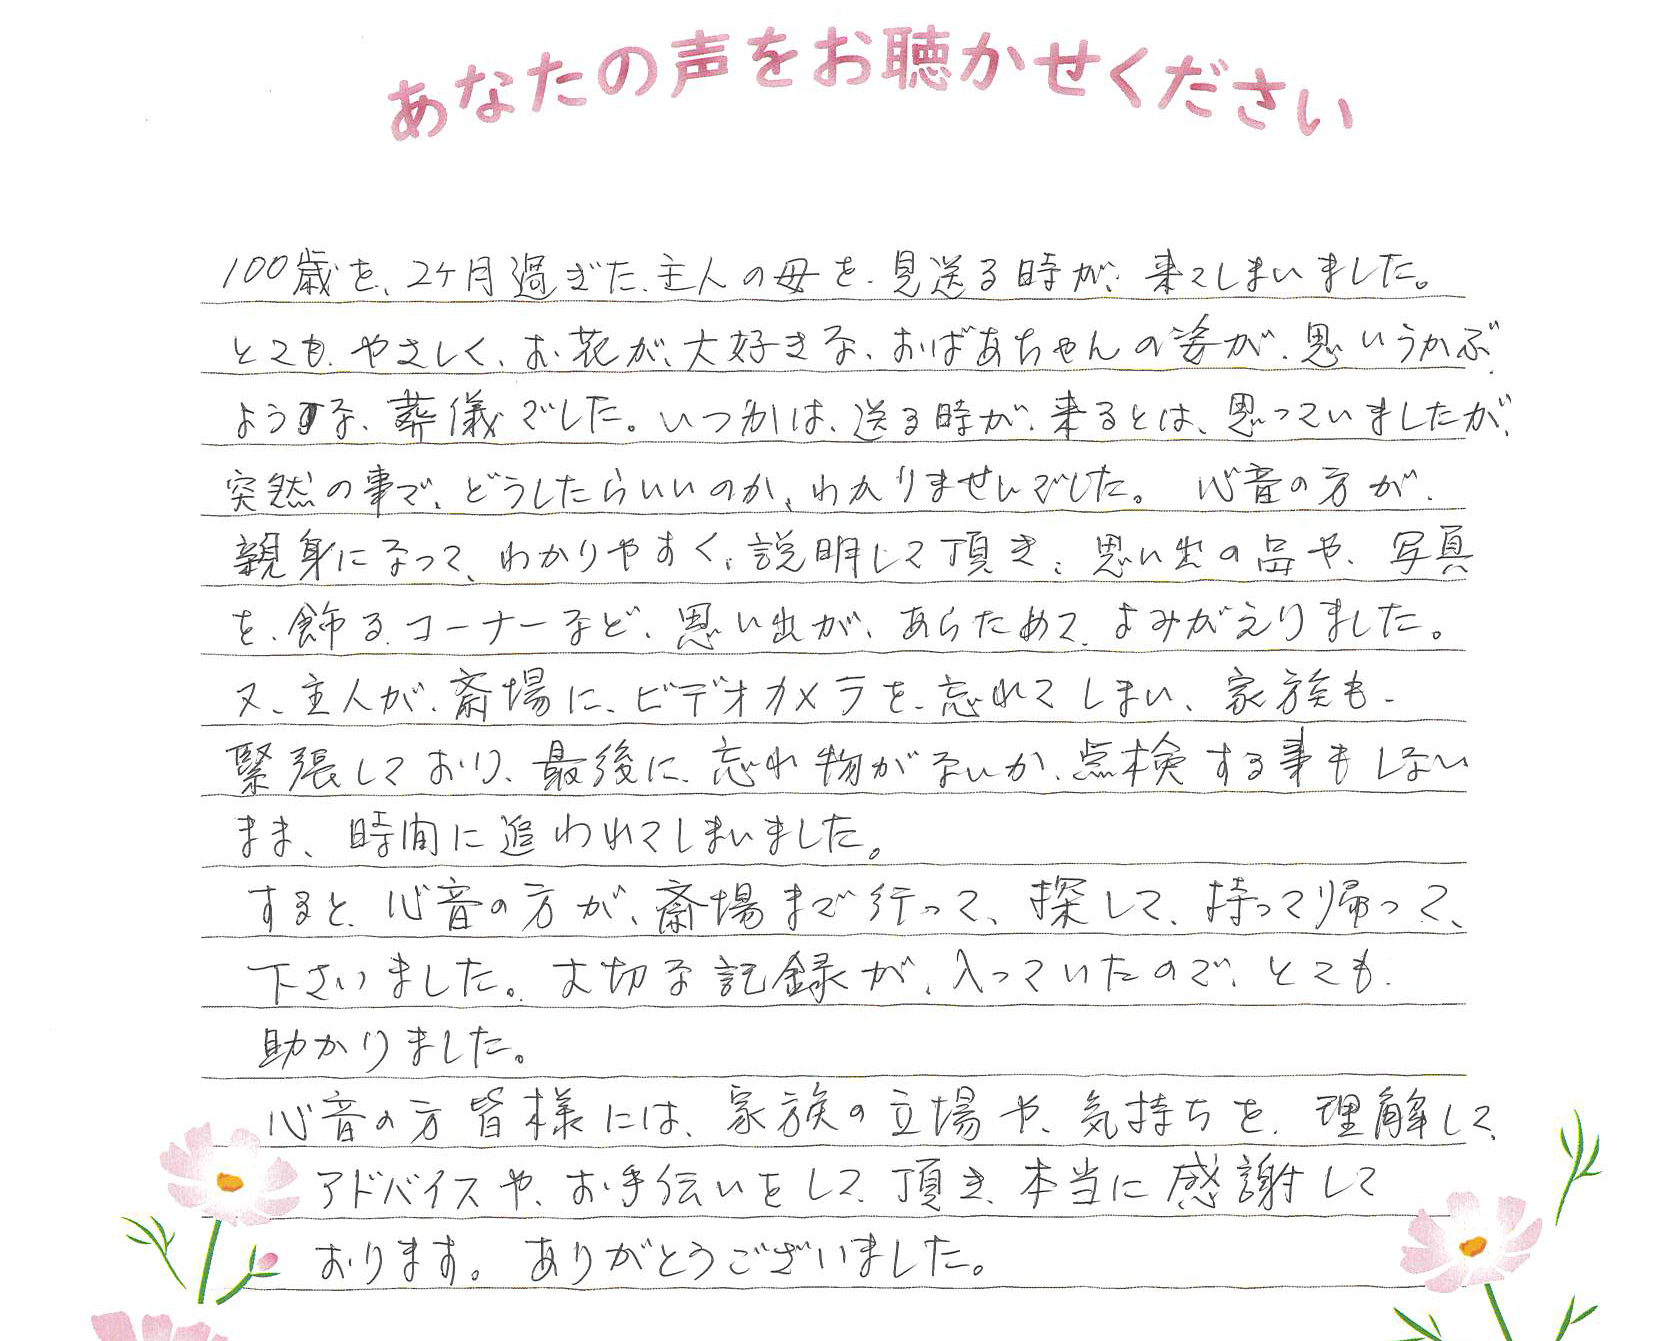 あなたの声をお聴かせください
100歳を、2ケ月過ぎた、主人の母を、見送る時が、来てしまいました。
とても、やさしく、お花が、大好きな、おばあちゃんの姿が、思いうかぶ
ような、葬儀でした。いつかは、送る時が、来るとは、思っていましたが、
突然の事で、どうしたらいいのか、わかりませんでした。 心音の方が、
親身になって、わかりやすく、説明して頂き、思い出の品や、写真
を、飾る、コーナーなど、思い出が、あらためて、よみがえりました。
又、主人が、斎場に、ビデオカメラを、忘れてしまい、家族も、
緊張しており、最後に、忘れ物がないか、点検する事もしない
まま、時間に追われてしまいました。
すると、心音の方が、斎場まで行って、探して、持って帰って、
下さいました。大切な記録が、入っていたので、とても、
助かりました。
心音の方皆様には、家族の立場や、気持ちを、理解して、
アドバイスや、お手伝いをして、頂き、本当に感謝して
おります。 ありがとうございました。